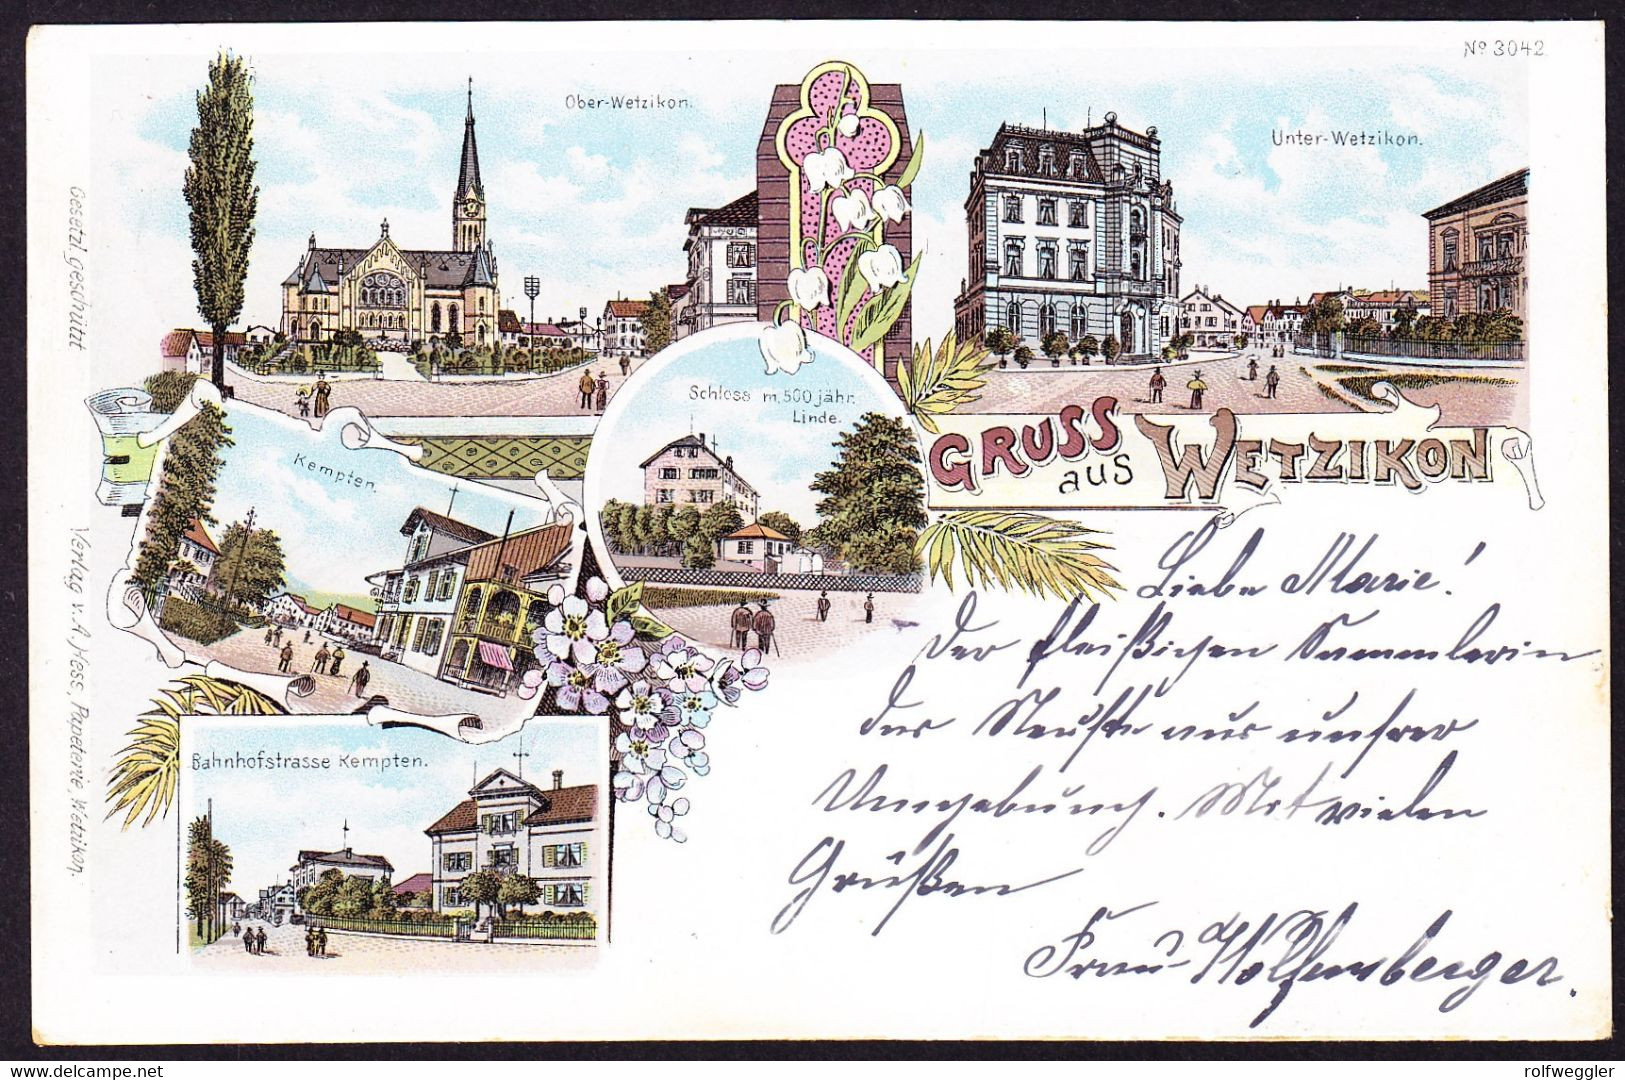 Nº 3042
Ober-Wetzikon.
Unter-Wetzikon.
Schloss m. 500 jähr.
Linde.
Kempten.
GRUSS
aus WETZIKON
Bahnhofstrasse Kempten.
Gesetzl. geschützt
Verlag v. A. Hess, Papeterie, Wetzikon.
Liebe Marie!
Der fleißigen Sammlerin
das Neuste aus unsrer
Umgebung. Mit vielen
Grüßen
Frau Wolfensberger.
delcampe.net
rolfweggler